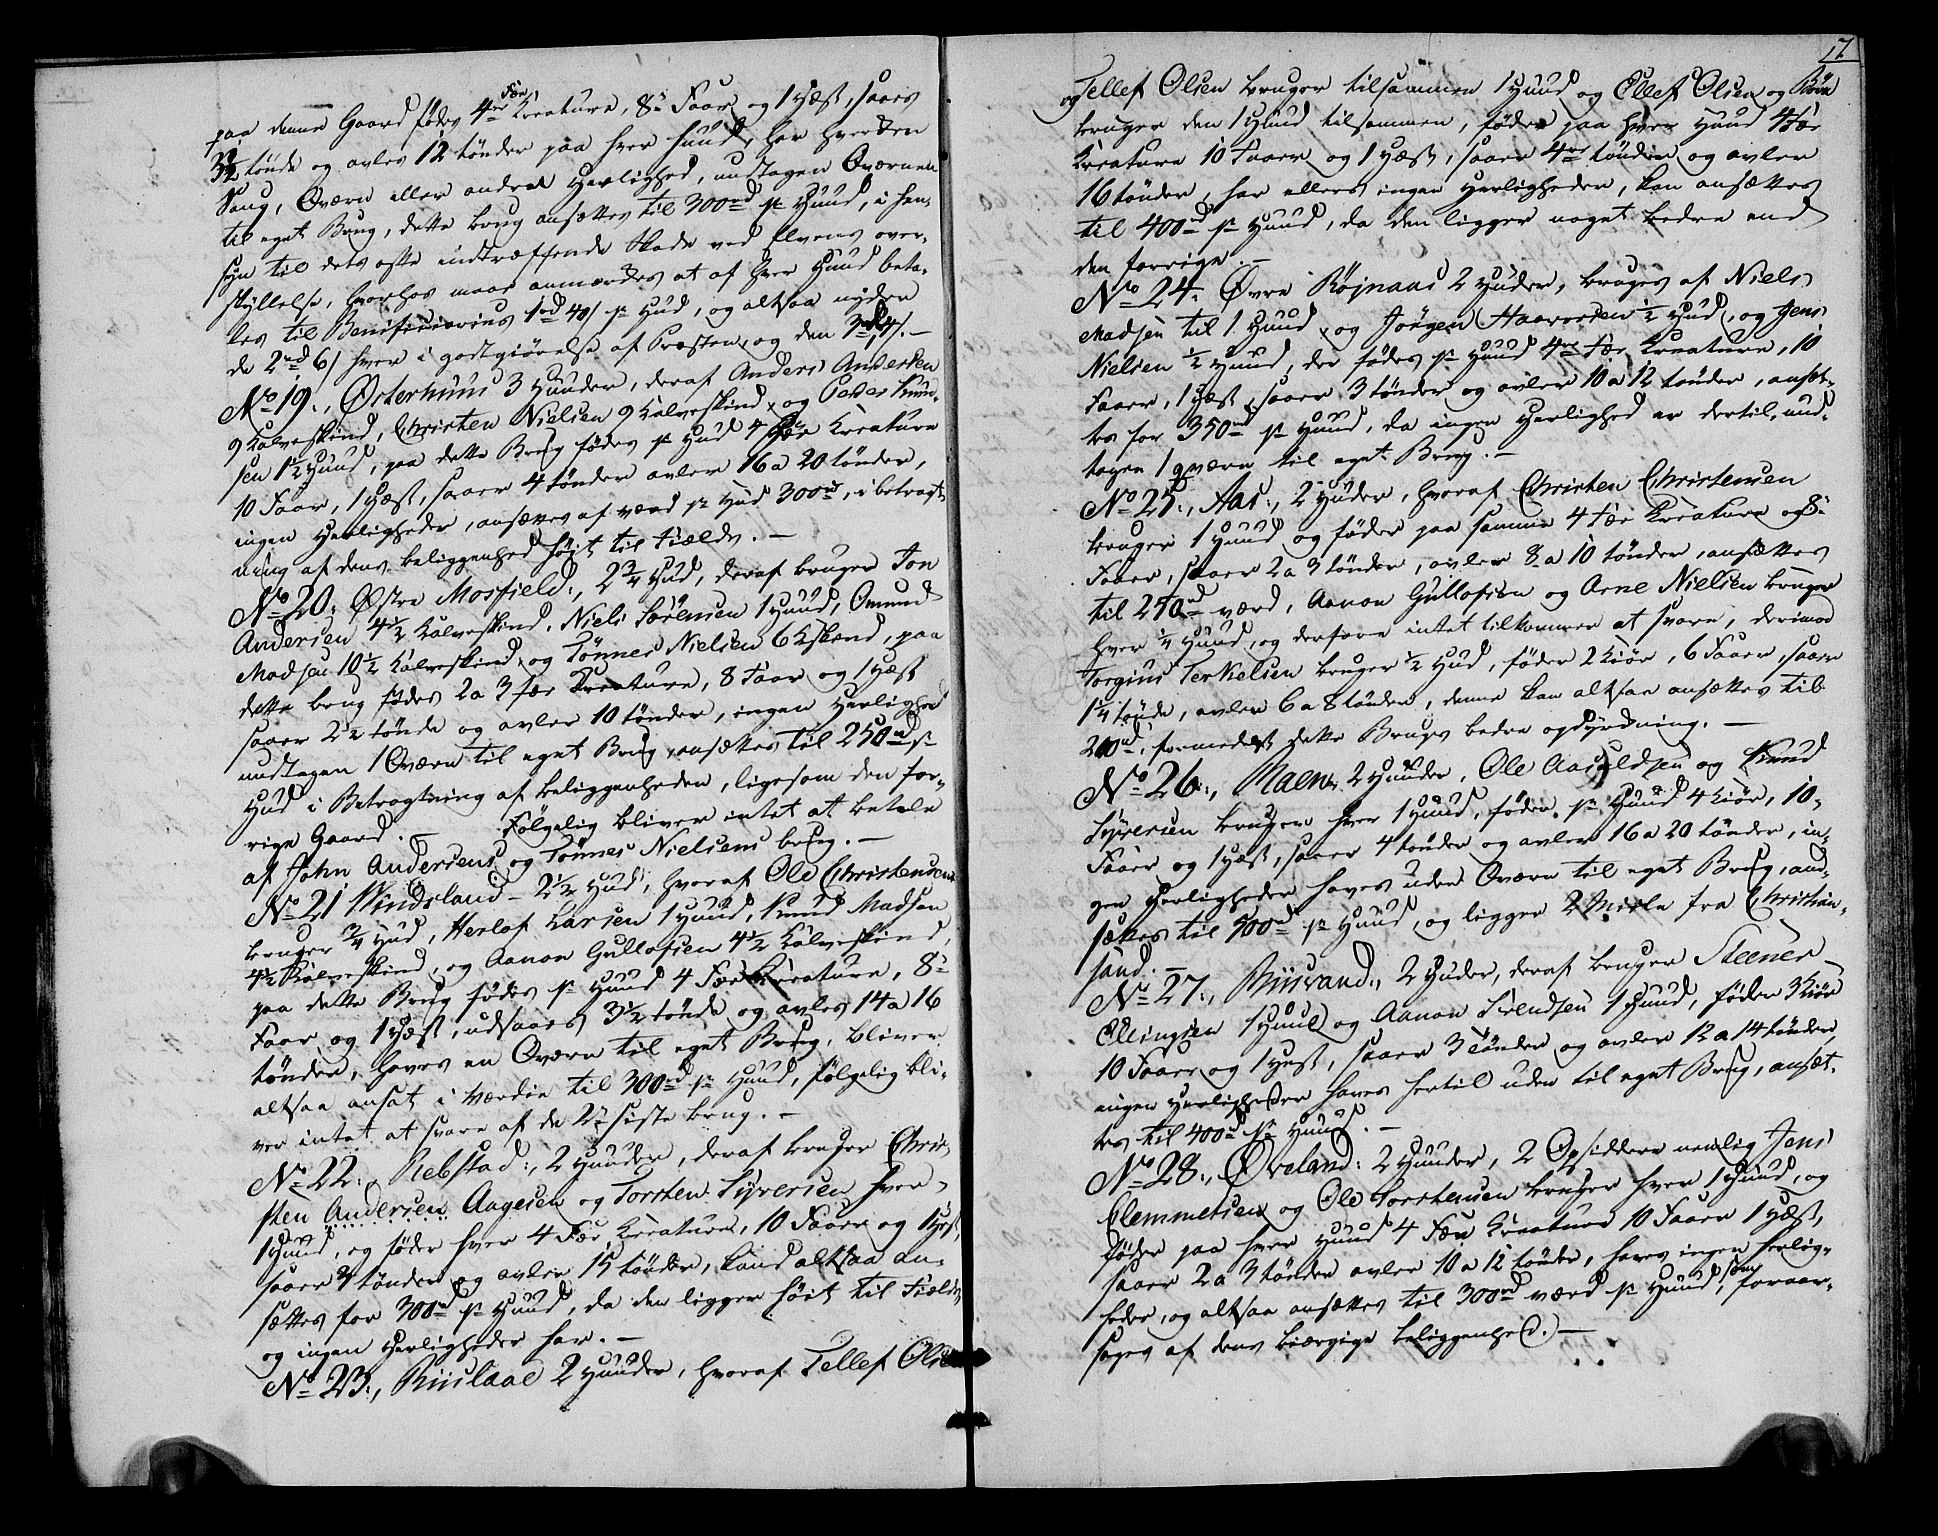 paa denne Gaard födes 4re Fæe Kreature, 8te Faar og 1 Hæst, saaes
3½ tönde og avles 12 tönder paa hver Huud, har hverken
Saug, Qværn eller anden Herlighed, undtagen Qværnen
til eget Brug, dette brug ansættes til 300rd pr Huud, i hen-
syn til dets ofte indtræffende Skade ved Elvens over-
skyllelse, hvorhos maae anmærkes at af hver Huud beta-
les til Benificiarius 1rd 40s pr Hud, og altsaa nyder
de 2rd 6s hver i godtgiörelse af Præsten, og den 3rd 4s. –
No 19., Østerhuus 3 Huuder, deraf Anders Andersen
9 Kalveskind, Christen Nielsen 9 Kalveskind, og Peder Knud-
sen 1½ Huud, paa dette Brug födes pr Hud 4 Fæe Kreature
10 Faar, 1 Hæst, saaer 4 tönder avler 16 a 20 tönder,
ingen Herligheder, ansættes af værd pr Hud 300rd, i betragt-
ning af dens beliggenhed höit til Fields. –
No 20. Østre Mosfield., 2¾ Hud, deraf bruger Jon
Andersen 4½ Kalveskind, Niels Sörensen 1 Huud, Omund
Madsen 10½ Kalveskind, og Tönnes Nielsen 6 Kskind, paa
dette brug födes 2 a 3 fæe Kreature, 8 Faar og 1 Hæst
saaer 2½ tönde og avler 10 tönder, ingen Herlighed
undtagen 1 Qværn til eget Brug, ansættes til 250rd pr
Hud i Betragtning af beliggenheden, ligesom den for-
rige Gaard. – Fölgelig bliver intet at betale
af John Andersens og Tönnes Nielsens brug. –
No 21 Windsland – 2½ Hud, hvoraf Ole Christensen
bruger ¾ Hud, Herlof Larsen 1 Huud, Knud Madsen
4½ Kalveskind, og Aanon Gullofsen 4½ Kalveskind,
paa dette Brug födes pr Huud 4 Fæe Kreature, 8te
Faar og 1 Hæst, udsaaes 3½ tönde og avles 14 a 16
tönder, haves en Qværn til eget Brug, bliver
altsaa ansat i Værdie til 300rd pr Huud, fölgelig bli-
ver intet at svare af de 2de siste brug. –
No 22., Rebstad., 2 Huuder, deraf bruger Chris-
sten Andersen Aagesen og Torsten Syversen hver
1 Huud, og föder hver 4 Fæe Kreature, 10 Faaer og 1 Hest,
saaer 4 tönder og avler 15 tönder, kand altsaa an-
sættes for 300rd pr Huud, da den ligger höit til Fields
og ingen Herligheder har. –
No 23., Biislaae 2 Huuder, hvoraf Tellef Olsen
17
og Tellef Olsen bruger tilsammen 1 Huud og Ellef Olsen og
bruger den 1 Huud tilsammen, föder paa hver Huud 4 Fæe
Kreature 10 Faaer og 1 Hæst, saaer 4re tönder og avler
16 tönder, har ellers ingen Herligheder, kan ansættes
til 400rd pr Huud, da den ligger noget bedre end
den forrige. –
No 24. Øvre Röjnaas 2 Huder, bruges af Niels
Madsen til 1 Huud, og Jörgen Haavorsen ½ Hud, og Jens
Nielsen ½ Huud, der födes pr Huud 4re Fæe Kreature, 10
Faaer, 1 Hæst, saaer 3 tönder og avler 10 a 12 tönder, ansæt-
tes for 350rd pr Huud, da ingen Herlighed er dertil, und-
tagen 1 qværn til eget Brug. –
No 25., Aas., 2 Huder, hvoraf Christen Christensen
bruger 1 Huud og föder paa samme 4 Fæe Kreature og 8te
Faaer, saaer 2 a 3 tönder, avler 8 a 10 tönder, ansættes
til 250rd værd, Aanon Gullofsen og Arne Nielsen bruger
hver ¼ Huud, og derfore intet tilkommer at svare, derimod
Torgius Terkelsen bruger ½ Hud, föder 2 Kiör, 6 Faaer, saaer
1¼ tönde, avler 6 a 8 tönder, denne kan altsaa ansættes til
200rd, formedelst dette Brugs bedre opdyrkning. –
No 26., Maen. 2 Huuder, Ole Aasuldsen og Knud
Syversen bruger hver 1 Huud, föder pr Huud 4 Kiör, 10
Faaer og 1 Hæst, saaer 4 tönder og avler 16 a 20 tönder, in-
gen Herligheder haves uden Qværn til eget Brug, an-
sættes til 500rd pr Huud, og ligger 2 Miile fra Christian-
sand. –
No 27., Biisvand., 2 Huder, deraf bruger Steener
Ellingsen 1 Huud og Aanon Svendsen 1 Huud, föder 3 Kiör
10 Faaer og 1 Hest, saaer 3 tönder og avler 12 a 14 tönder,
ingen Herligheder haves hertil uden til eget Brug, ansæt-
tes til 400rd pr Huud. –
No 28., Øveland: 2 Huuder, 2 Opsiddere nemlig Jens
Clemmetsen og Ole Torstensen bruger hver 1 Huud, og
föder paa hver Huud 4 Fæe Kreature 10 Faaer 1 Hæst,
saaer 2 a 3 tönder avler 10 a 12 tönder, haves ingen herlig-
heder, og altsaa ansættes til 300rd værd pr Huud, som foraar-
sages af dens biergige beliggenhed. –